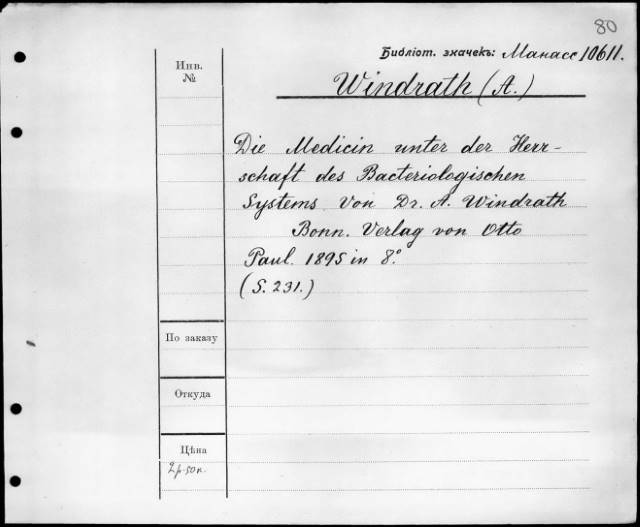 80
Библіот. значекъ: Манасс 10611.
Инв.
№
Windrath (A.)
Die Medicin unter der Herr-
schaft des Bacteriologischen
Systems von Dr. A. Windrath
Bonn. Verlag von Otto
Paul. 1895 in 8°.
(S. 231.)
По заказу
Откуда
Цѣна
2 р. 50 к.